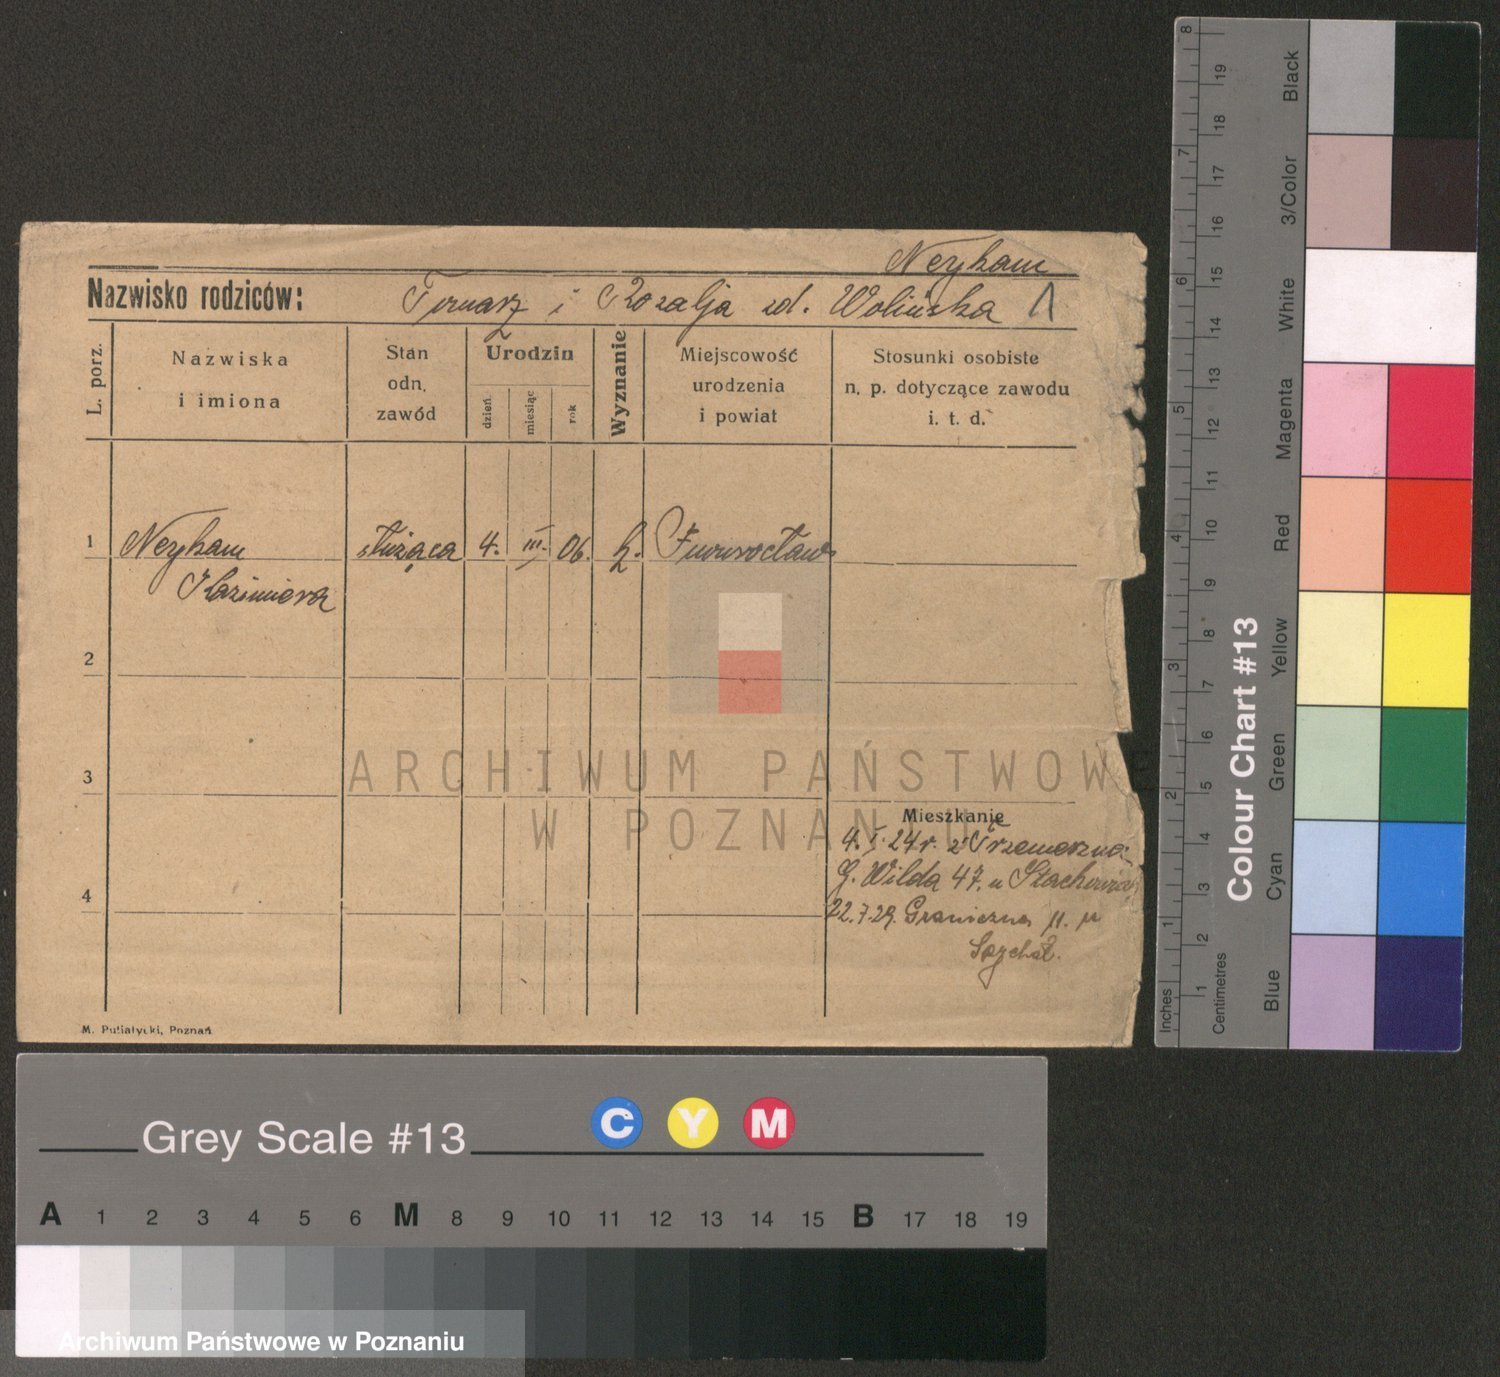 Neyham
Nazwisko rodziców: Tomasz i Rozalja zd. Wolińska 1
L. porz.
Nazwiska
i imiona
Stan
odn.
zawód
Urodzin
dzień
miesiąc
rok
Wyznanie
Miejscowość
urodzenia
i powiat
Stosunki osobiste
n. p. dotyczące zawodu
i. t. d.
1 Neyham służąca 4. III. 06. k. Inowrocław
Kazimiera
2
3
4
Mieszkanie
4. I. 24 r. z Trzemeszna
G. Wilda 47. u
22.7.29. Graniczna 11. u
M. Putiatycki, Poznań
ARCHIWUM PAŃSTWOWE
W POZNANIU
8 7 6 5 4 3 2 1
Inches
19 18 17 16 15 14 13 12 11 10 9 8 7 6 5 4 3 2 1
Centimetres
Colour Chart #13
Black
3/Color
White
Magenta
Red
Yellow
Green
Cyan
Blue
Grey Scale #13
C Y M
A 1 2 3 4 5 6 M 8 9 10 11 12 13 14 15 B 17 18 19
Archiwum Państwowe w Poznaniu